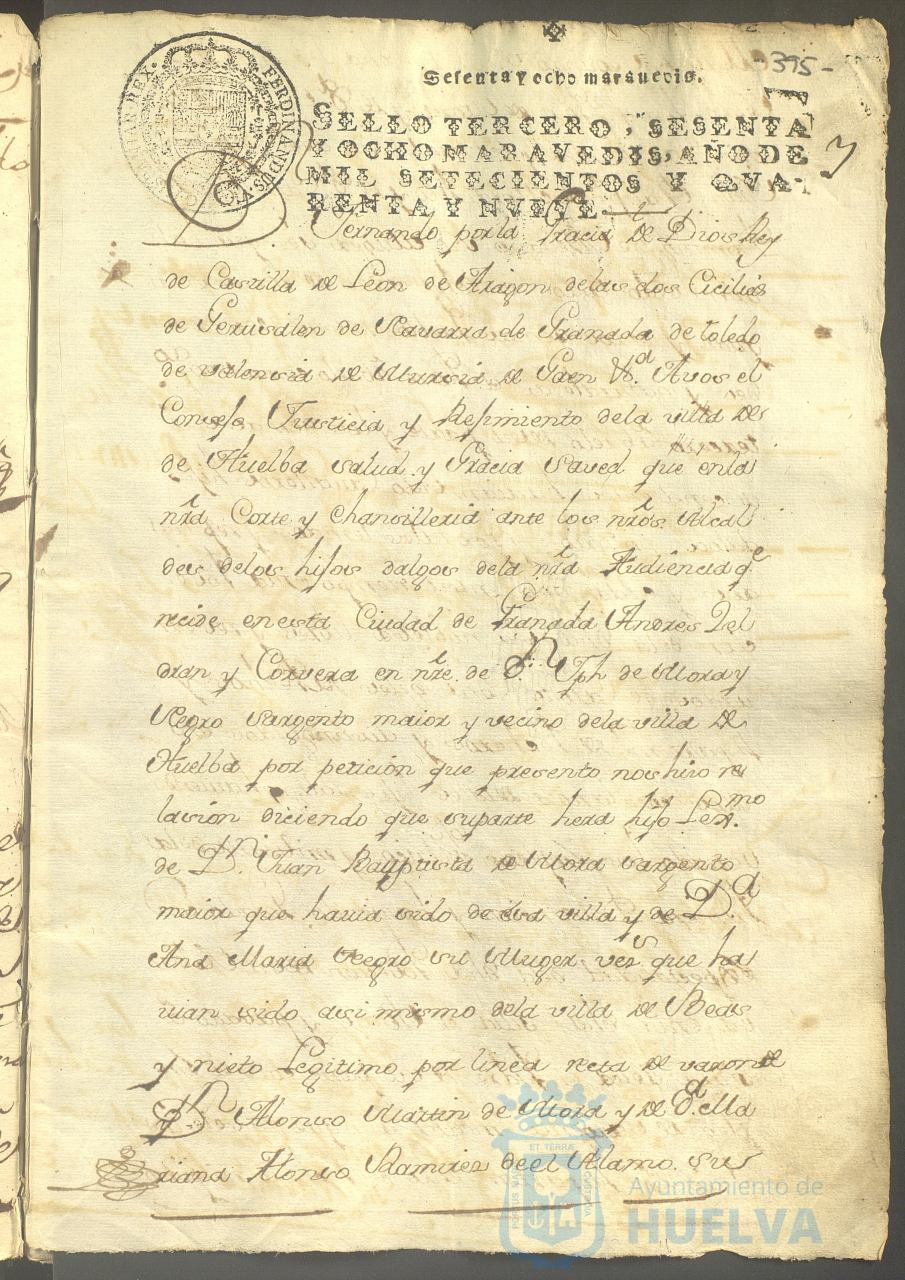 -395-
Sesenta y ocho maravedis.
SELLO TERCERO, SESENTA
Y OCHO MARAVEDIS, AÑO DE
MIL SETECIENTOS Y QVA-
RENTA Y NVEVE.
FERDINANDUS
REX
Fernando por la Gracia de Dios Rey
de Castilla de Leon de Aragon delas dos Cicilias
de Gerusalen de Navarra de Granada de toledo
de valensia de Mursia de Gaen &.a Avos el
Consejo Justicia y Rejimiento dela villa de
de Huelba salud y Gracia saved que enla
nra Corte y Chansilleria ante los nros Alcal
des delos hijos dalgos dela nra Audiencia qe
recide enesta Ciudad de Granada Andres Bel
dran y Corvera en nre. de Dn. Jph de Mora y
Negro sargento maior y vecino dela villa de
Huelba por peticion que presento nos hizo re
lasion diciendo que suparte hera hijo Lexmo.
de Dn. Juan Bauptista de Mora sargento
maior que havia sido de esa villa y de Da.
Ana Maria Negro su Muger vezs que ha
vian sido asi mismo dela villa de Beas
y nieto Legitimo por linea recta de varon de
Dn Alonso Martin de Mora y de Da. Ma
riana Alonso Ramires de el Alamo sus
Ayuntamiento de
HUELVA